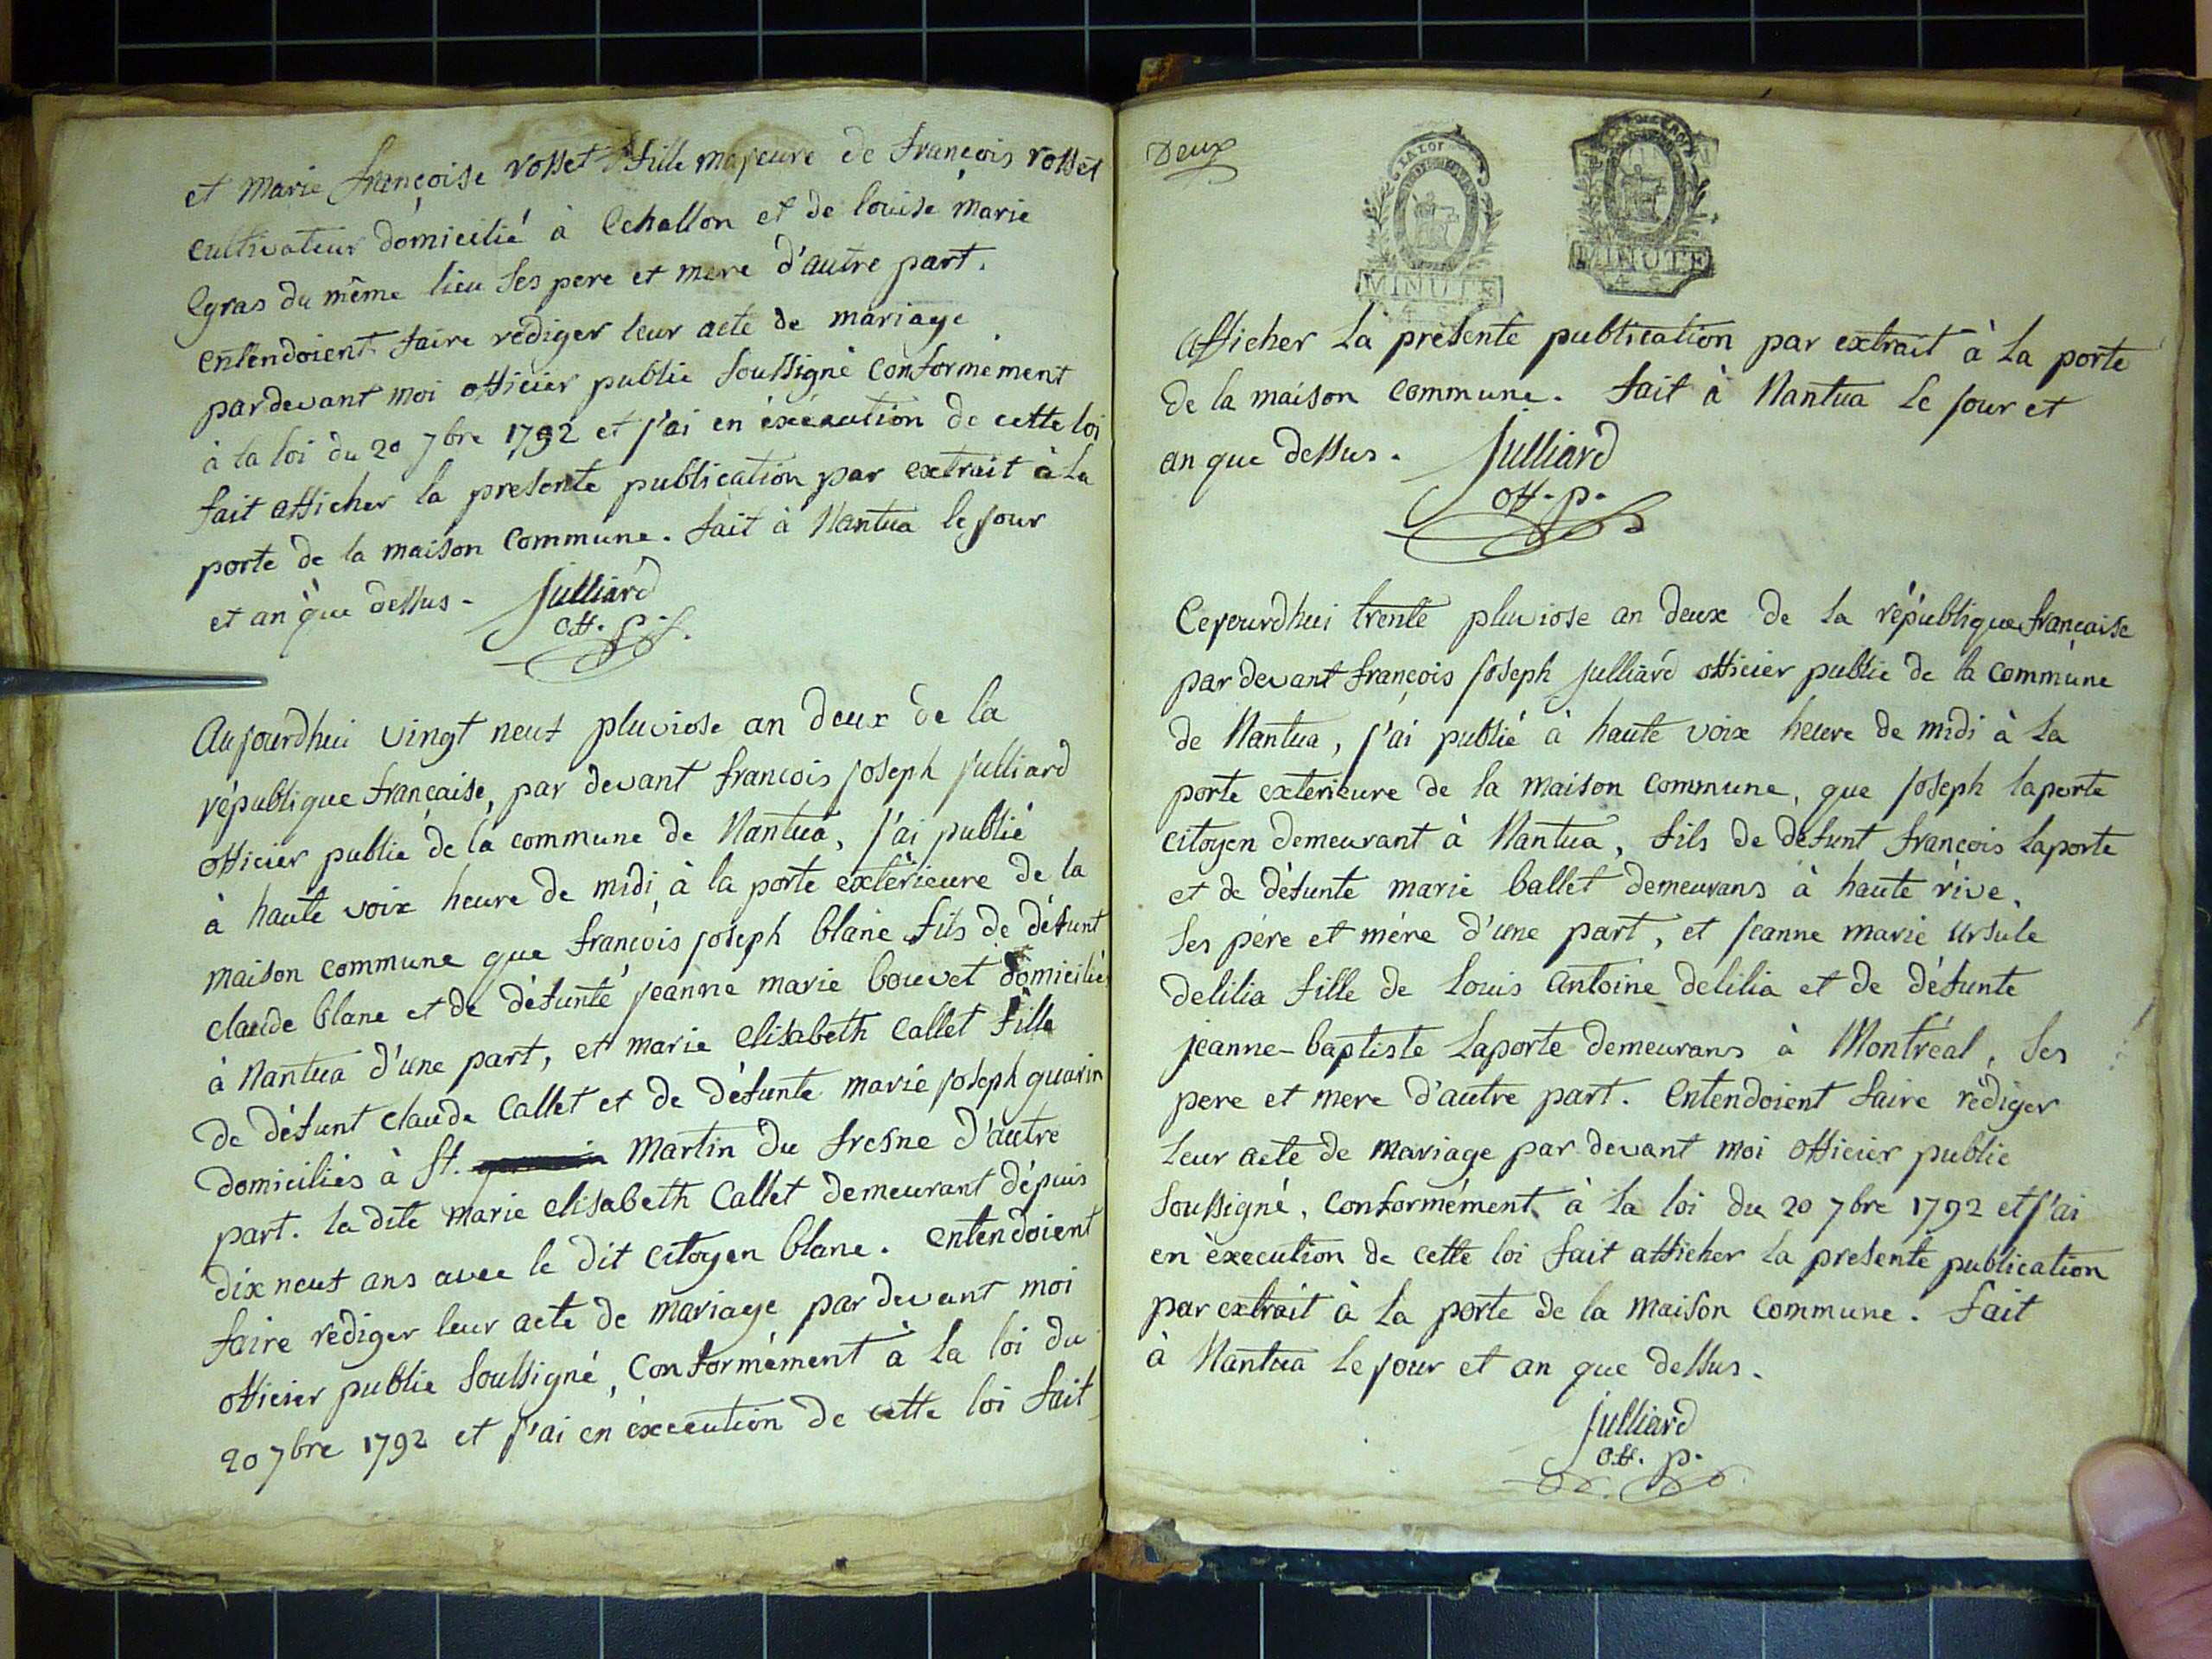 et marie françoise rosset fille majeure de françois rosset
cultivateur domicilié à Echallon et de louise marie
Egras du même lieu ses pere et mere d'autre part.
entendoient faire rédiger leur acte de mariage
pardevant moi officier public soussigné conformément
à la loi du 20 7bre 1792 et j'ai en éxécution de cette loi
fait afficher la presente publication par extrait à la
porte de la maison commune. fait à Nantua le jour
et an que dessus. Julliard
off. p.
Aujourdhui vingt neuf pluviose an deux de la
république française, par devant francois joseph julliard
officier public de la commune de Nantua, j'ai publié
à haute voix heure de midi, à la porte extèrieure de la
maison commune que françois joseph blanc fils de défunt
claude blanc et de défunte jeanne marie bouvet domiciliés
à Nantua d'une part, et marie elisabeth Callet fille
de défunt claude Callet et de défunte marie joseph guarin
domiciliés à St. Martin du fresne d'autre
part. la dite marie elisabeth Callet demeurant dépuis
dix neuf ans avec le dit citoyen blanc. entendoient
faire rediger leur acte de mariage par devant moi
officier public soussigné, Conformément à la loi du
20 7bre 1792 et j'ai en éxecution de cette loi fait
Deux
LA LOI
MINUTE
MINUTE
afficher la présente publication par extrait à la porte
de la maison commune. fait à Nantua le jour et
an que dessus. Julliard
off. p.
Cejourdhui trente pluviose an deux de la république francaise
par devant françois joseph julliard officier public de la commune
de Nantua, j'ai publié à haute voix heure de midi à la
porte extérieure de la maison commune, que joseph laporte
citoyen demeurant à Nantua, fils de défunt françois laporte
et de défunte marie ballet demeurans à haute rive,
ses pére et mére d'une part, et jeanne marie ursule
delilia fille de Louis antoine delilia et de défunte
jeanne-baptiste Laporte demeurans à Montréal, ses
pere et mere d'autre part. entendoient faire rédiger
leur acte de mariage par devant moi officier public
soussigné, conformément à la loi du 20 7bre 1792 et j'ai
en èxecution de cette loi fait afficher la presente publication
par extrait à la porte de la maison commune. fait
à Nantua le jour et an que dessus.
Julliard
off. p.